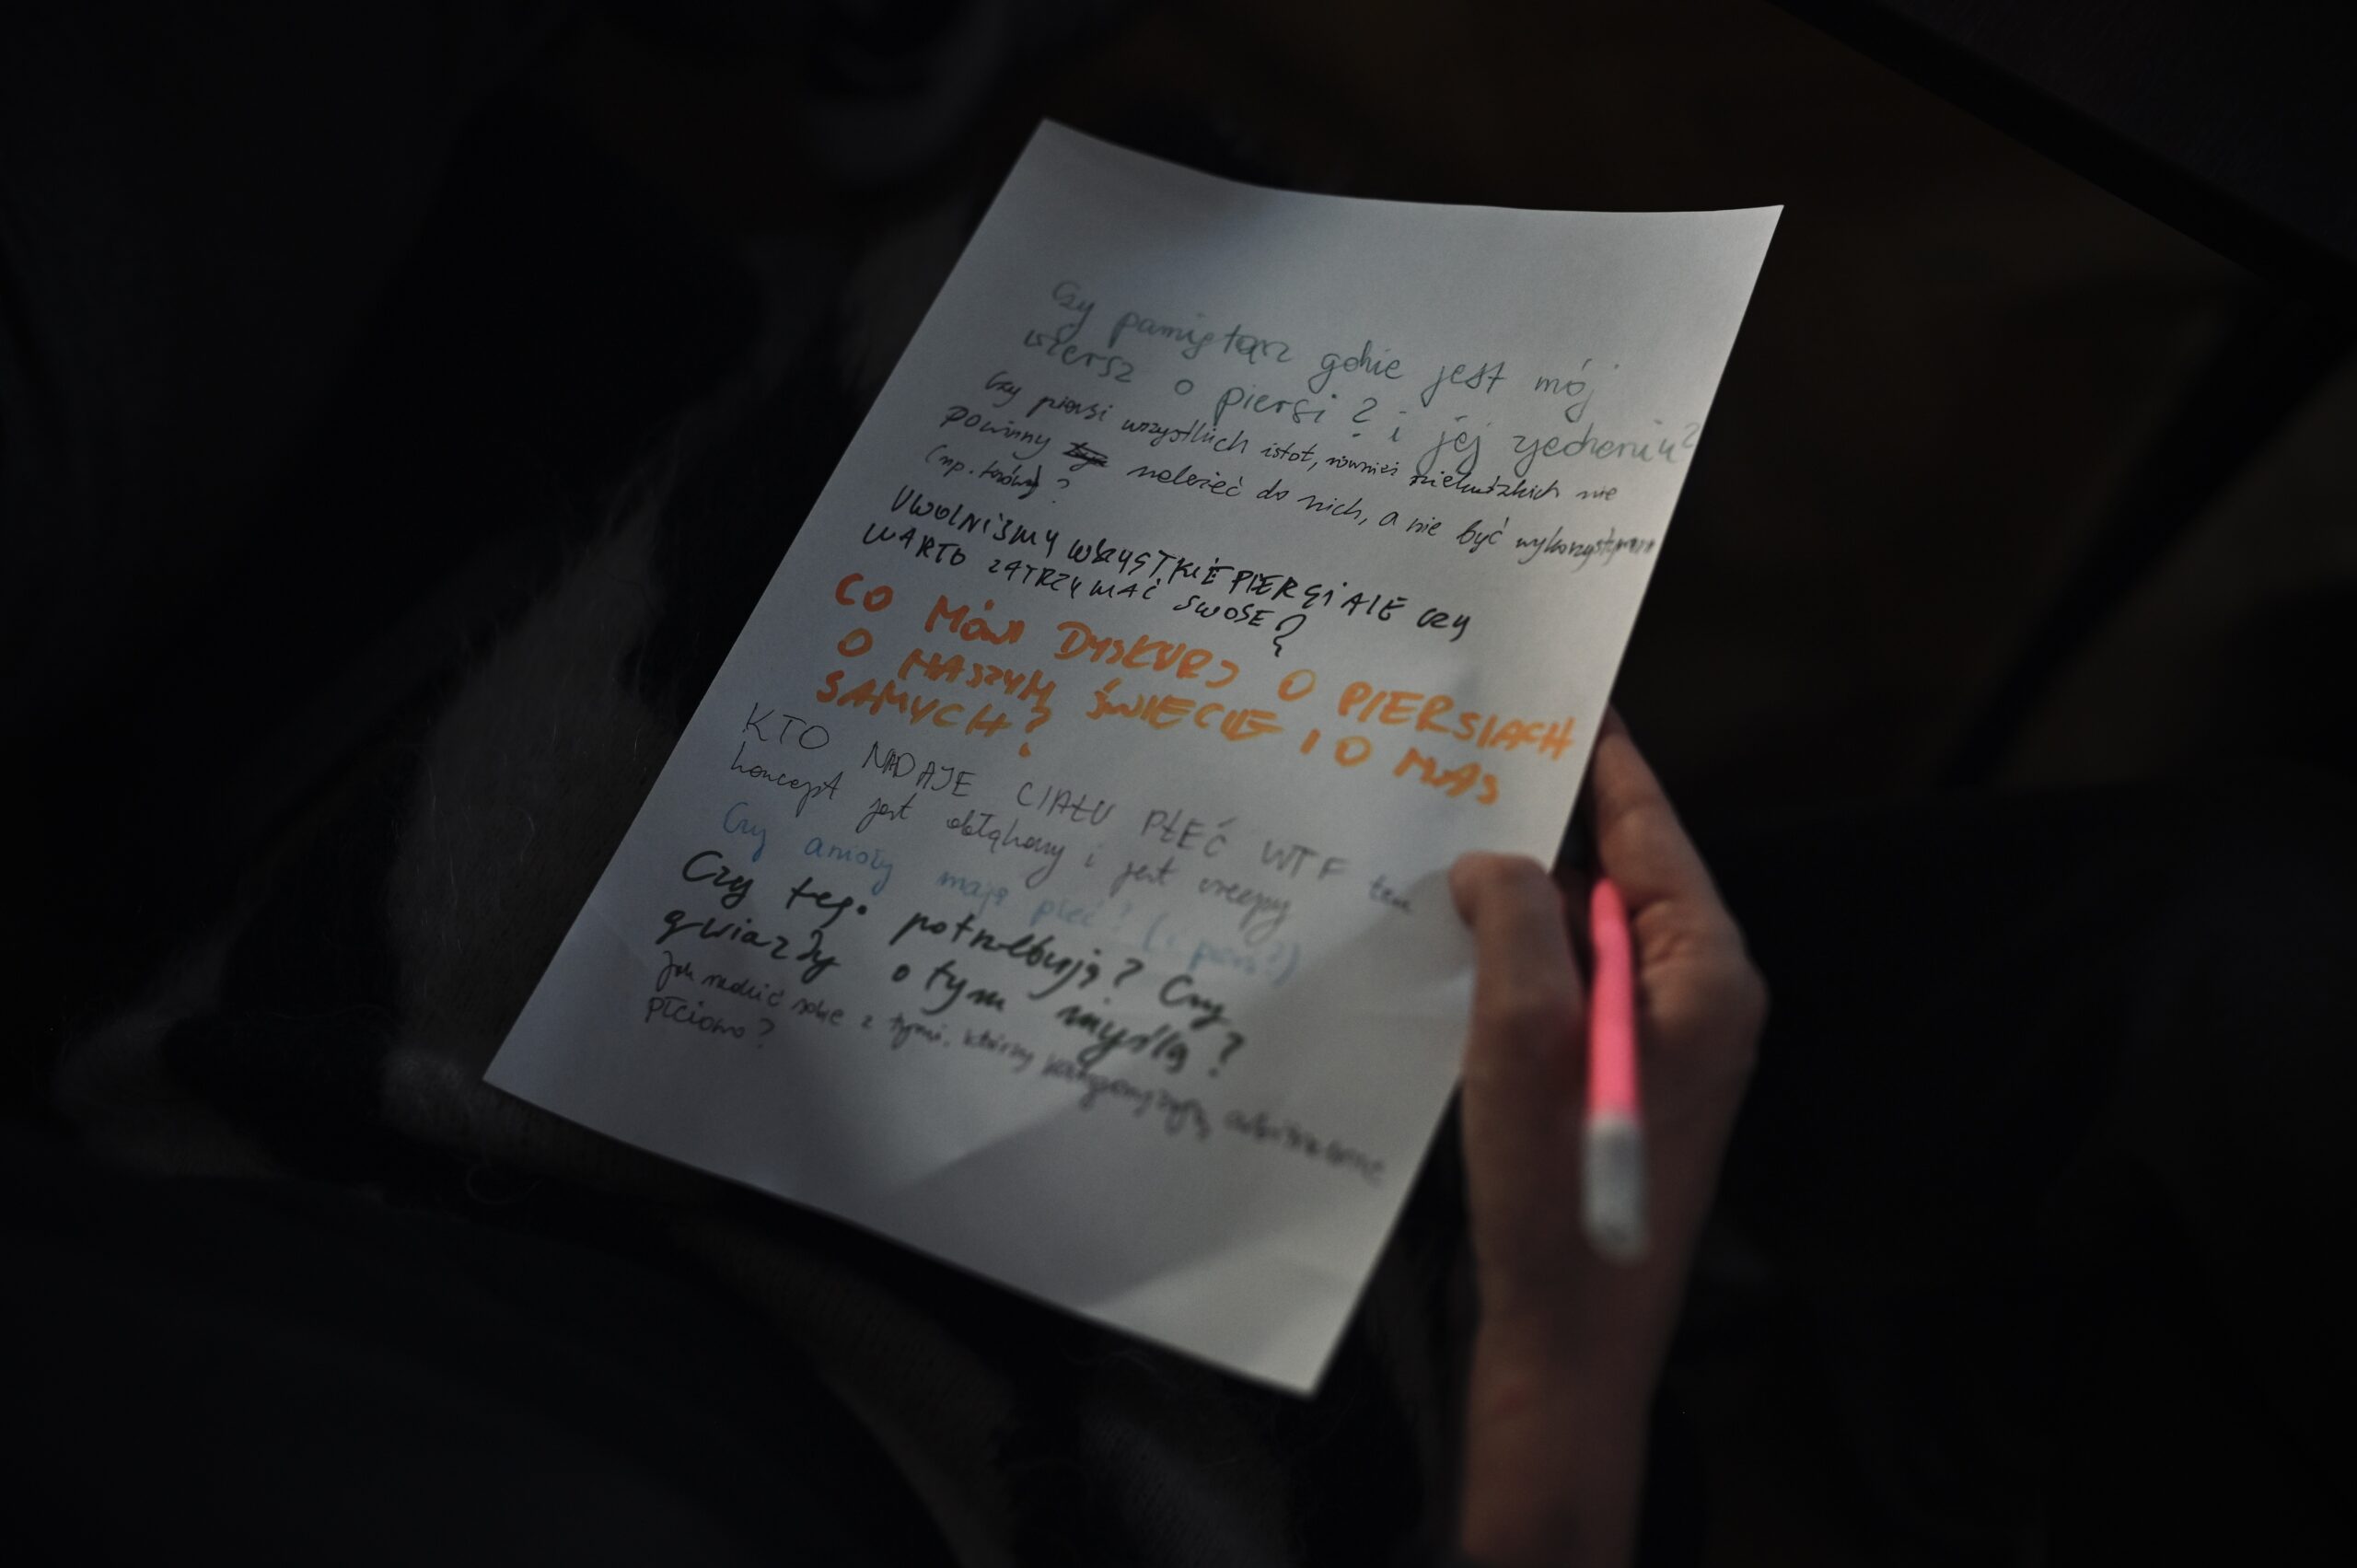 Czy pamiętasz gdzie jest mój
wiersz o piersi? i jej zjedzeniu?
Czy piersi wszystkich istot, również nieludzkich nie
powinny należeć do nich, a nie być wykorzystywane
(np. krowy)?
UWOLNIŚMY WSZYSTKIE PIERSI ALE czy
WARTO ZATRZYMAĆ SWOJE?
CO MÓWI DYSKURS O PIERSIACH
O NASZYM ŚWIECIE I O NAS
SAMYCH?
KTO NADAJE CIAŁU PŁEĆ WTF ten
koncept jest obłąkany i jest creepy
Czy anioły mają płeć? (i piersi?)
Czy tego potrzebują? Czy
gwiazdy o tym myślą?
Jak radzić sobie z tymi, którzy kategoryzują arbitralnie
płciowo?